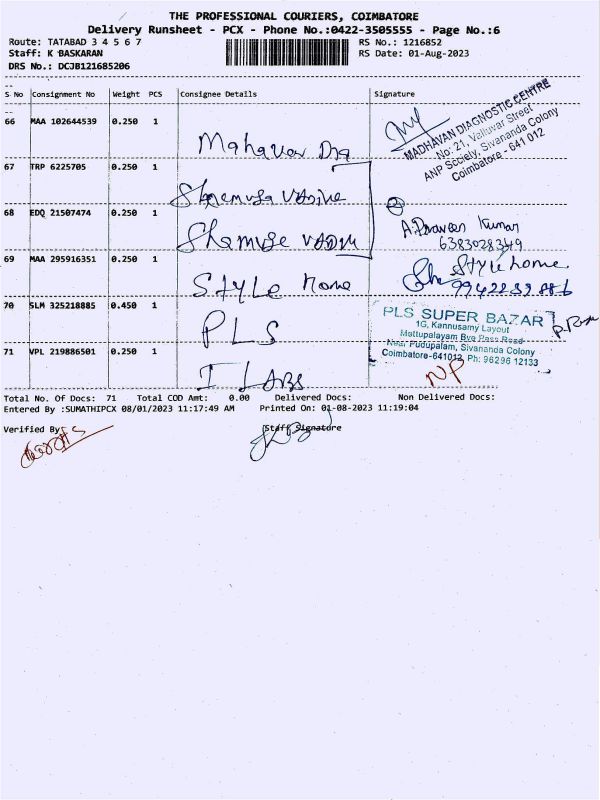 THE PROFESSIONAL COURIERS, COIMBATORE
Delivery Runsheet - PCX - Phone No.:0422-3505555 - Page No.:6
Route: TATABAD 3 4 5 6 7
RS No.: 1216852
Staff: K BASKARAN
RS Date: 01-Aug-2023
DRS No.: DCJB121685206
S No Consignment No Weight PCS Consignee Details Signature
66 MAA 102644539 0.250 1
MADHAVAN DIAGNOSTIC CENTRE
No: 21, Valluvar Street
ANP Society, Sivananda Colony
Coimbatore - 641 012
67 TRP 6225705 0.250 1
68 EDQ 21507474 0.250 1
A.Praveen Kumar
6383028349
69 MAA 295916351 0.250 1 Style home
Style home
70 SLM 325218885 0.450 1 PLS
PLS SUPER BAZAR
1G, Kannusamy Layout
Mettupalayam Bye Pass Road
Near Pudupalam, Sivananda Colony
Coimbatore-641012, Ph: 96296 12133
71 VPL 219886501 0.250 1 I LABS
NP
Total No. Of Docs: 71 Total COD Amt: 0.00 Delivered Docs: Non Delivered Docs:
Entered By :SUMATHIPCX 08/01/2023 11:17:49 AM Printed On: 01-08-2023 11:19:04
Verified By
Staff Signature